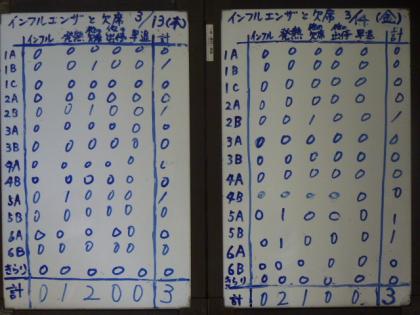 インフルエンザと欠席 3/13(木)
インフル 発熱 他の欠席 他の出停 早退 計
1A 0 0 0 0 0 0
1B 0 0 1 0 0 1
1C 0 0 0 0 0 0
2A 0 0 0 0 0 0
2B 0 0 1 0 0 1
3A 0 0 0 0 0 0
3B 0 0 0 0 0 0
4A 0 0 0 0 0 0
4B 0 0 0 0 0 0
5A 0 1 0 0 0 1
5B 0 0 0 0 0 0
6A 0 0 0 0 0 0
6B 0 0 0 0 0 0
きらり 0 0 0 0 0 0
計 0 1 2 0 0 3
インフルエンザと欠席 3/14(金)
インフル 発熱 他の欠席 他の出停 早退 計
1A 0 0 0 0 0 0
1B 0 0 0 0 0 0
1C 0 0 0 0 0 0
2A 0 0 0 0 0 0
2B 0 0 1 0 0 1
3A 0 0 0 0 0 0
3B 0 0 0 0 0 0
4A 0 0 0 0 0 0
4B 0 0 0 0 0
5A 0 1 0 0 0 1
5B 0 1 0 0 0 1
6A
6B 0 0 0 0 0 0
きらり 0 0 0 0 0 0
計 0 2 1 0 0 3